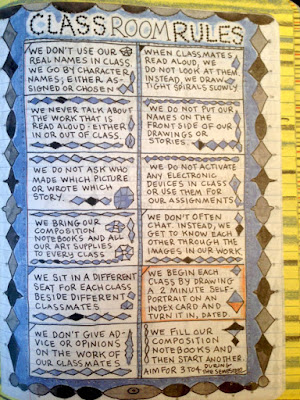 CLASSROOM RULES
WE DON'T USE OUR
REAL NAMES IN CLASS.
WE GO BY CHARACTER
NAMES, EITHER AS-
SIGNED OR CHOSEN
WHEN CLASSMATES
READ ALOUD, WE
DO NOT LOOK AT THEM.
INSTEAD, WE DRAW
TIGHT SPIRALS SLOWLY
WE NEVER TALK ABOUT
THE WORK THAT IS
READ ALOUD - EITHER
IN OR OUT OF CLASS.
WE DO NOT PUT OUR
NAMES ON THE
FRONT SIDE OF OUR
DRAWINGS OR
STORIES.
WE DO NOT ASK WHO
MADE WHICH PICTURE
OR WROTE WHICH
STORY.
WE DO NOT ACTIVATE
ANY ELECTRONIC
DEVICES IN CLASS
OR USE THEM FOR
OUR ASSIGNMENTS
WE BRING OUR
COMPOSITION
NOTEBOOKS AND ALL
OUR ART SUPPLIES
TO EVERY CLASS
WE DON'T OFTEN
CHAT. INSTEAD, WE
GET TO KNOW EACH
OTHER THROUGH THE
IMAGES IN OUR WORK
WE SIT IN A DIFFERENT
SEAT FOR EACH CLASS
BESIDE DIFFERENT
CLASSMATES
WE BEGIN EACH
CLASS BY DRAWING
A 2 MINUTE SELF
PORTRAIT ON AN
INDEX CARD AND
TURN IT IN, DATED.
WE DON'T GIVE AD-
VICE OR OPINIONS
ON THE WORK OF
OUR CLASSMATES
WE FILL OUR
COMPOSITION
NOTEBOOKS AND THEN
START ANOTHER.
AIM FOR 3 TO 4 DURING
the Semester